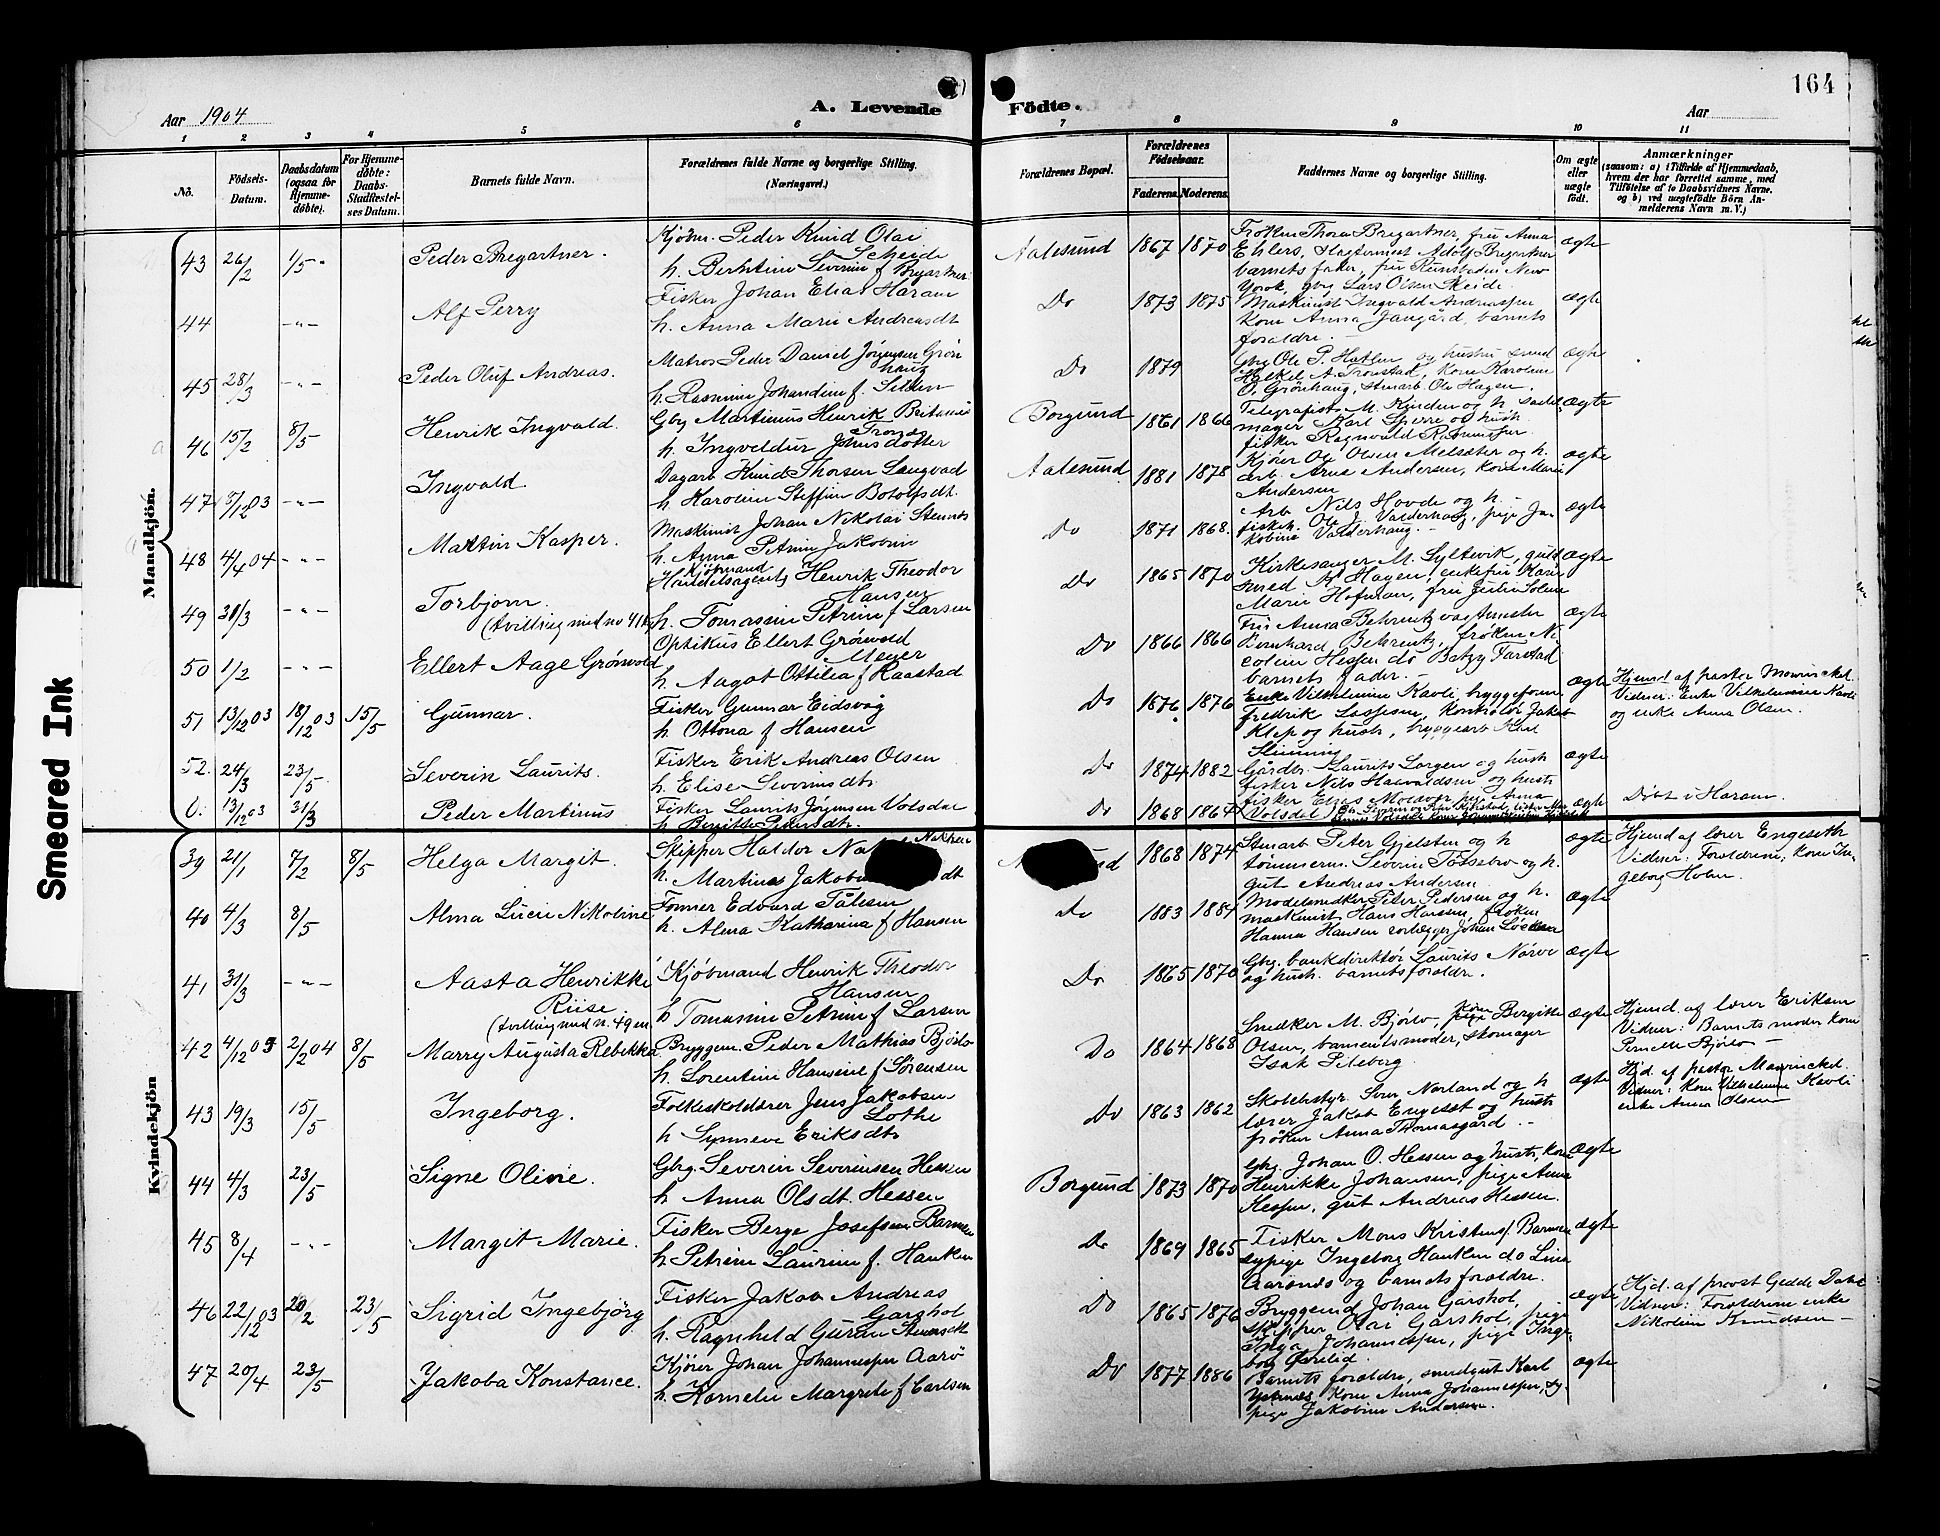 164
Aar 1904
A. Levende
Födte.
Aar
1 2 3 4 5 6 7 8 9 10 11
Nö.
Födsels-Datum.
Daabsdatum (ogsaa for Hjemmedöbte).
For Hjemmedöbte: Daabs-Stadfestelses Datum.
Barnets fulde Navn.
Forældrenes fulde Navne og borgerlige Stilling.
(Næringsvei.)
Forældrenes Bopæl.
Forældrenes Födselsaar.
Faderens. Moderens.
Faddernes Navne og borgerlige Stilling.
Om ægte eller uægte födt.
Anmærkninger
(saasom: a) i Tilfælde af Hjemmedaab, hvem der har forrettet samme, med Tilföielse af to Daabsvidners Navne, og b) ved uægtefödte Börn Anmelderens Navn m. V.)
Mandkjön.
43 26/2 1/5 Peder Bregartner.
Kjøbm. Peder Knud Olai Scheide
h. Berntine Severine f Bregartner
Aalesund 1867 1870
Frøken Thora Bregartner, fru Anna
Ehlers, Slagtermest Adolf Bregartner
barnets fader, fru
York, gbr Lars Olsen Skeide.
ægte
44 -"- Alf Perry
Fisker Johan Elias Haram
h. Anna Marie Andreasdt
Do 1873 1875
Maskinist Ingvald Andreassen
Kone Anna barnets
foraldre.
ægte
45 28/3 -"- Peder Oluf Andreas.
Matros Peder Daniel Jørgensen Grønhaug
h. Rasmine Johandine f.
Do 1879
Gbr Ole P. Hatlen og hustru smed
A. Tronstad, kone Karoline
O. Grönhaug, Stenarb. Ole Hagen.
ægte
46 15/2 8/5 Henrik Ingvald.
Gbr Martinus Henrik
h. Ingveldur Johnsdotter
Borgund 1861 1866
Telegrafist M. og h. sadelmager Karl Sperre og hustr
fisker Ragnvald Rasmussen
ægte
47 8/12 03 -"- Ingvald.
Dagarb Knud Thorsen Langvad
h Karoline Steffine Botolfsdt.
Aalesund 1881 1878
Kjører Ole Olsen Melsæter og h.
arb. Arne Andersen, kone Marie
Andersen
ægte
48 4/4 04 -"- Martin Kasper.
Maskinist Johan Nikolai Stennes
h. Anna Petrine Jakobine
Do 1871 1868.
Arb Nils Hovde og h.
fisker Ole J. Valderhaug, pige Jakobine Valderhaug.
ægte
49 31/3 -"- Torbjørn.
(tvilling med no 41 k)
Kjøbmand
Handelsagent Henrik Theodor
Hansen
h. Tomasine Petrine f Larsen
Do 1865 1870
Kirkesanger M. Syltevik, guldsmed K Hagen, enkefru Karen
Marie Hofman, fru Julie Solem
ægte
50 1/2 -"- Ellert Aage Grönvold
Optikus Ellert Grönvold
Meyer
h. Aagot Ottilia f Raastad
Do 1866 1866
Fru Anna Behrentz
Bernhard Behrentz, frøken Nicoline Hessen do Betzy Farstad
barnets fader.
ægte
51 13/12 03 18/12 03 15/5 Gunnar.
Fisker Gunnar Eidsvåg
h Ottona f Hansen
Do 1876 1876
Enke Vilhelmine Kavli, bryggeform
Fredrik Lassesen, kontrolør Jakob
Klep og hustr, bryggearb Karl
Slinning
ægte
Hjemd af pastor Monrinckel.
Vidner: Enke Vilhelmine Kavli
og enke Anna Olsen.
52 24/3 23/5 Severin Laurits.
Fisker Erik Andreas Olsen
h. Elise Severinsdtr
Do 1874 1882
Gårdbr. Laurits Longen og hustr
fisker Nils Haavaldsen og hustr
ægte
0. 13/12 03 31/3 Peder Martinus
Fisker Laurits Jørgensen Volsdal
h Beritte Pedersdt.
Do 1868 1867
fisker Elias
Volsdal
ægte
Døbt i Haram.
Kvindekjön
39 21/1 7/2 8/5 Helga Margit.
Skipper Haldor Nakken
h. Martine Jakobine dt
1868 1874
Stenarb Peter Gjelsten og h
tømmerm. Severin Tøssebro og h.
gut Andreas Andersen
ægte
Hjemd af lærer Engeseth
Vidner: Foraldrene, kone Ingeborg Holm.
40 4/3 8/5 Alma Lucie Nikoline
Former Edvard Tålesen
h. Alma Katharina f Hansen
do 1883 1884
Modelsnedker Peter Pedersen og h.
maskinist Hans Hansen, frøken
Hanna Hansen Johan
ægte
41 31/3 -"- Aasta Henrikke
Riise
(tvilling med n. 49 m)
Kjøbmand Henrik Theodor
Hansen
h Tomasine Petrine f Larsen
Do 1865 1870
Gbr. bankdirektør Laurits Nörve
og hust. barnets foraldre.
ægte
42 4/12 03 2/2 04 8/5 Marry Augusta Rebekka
Bryggem. Peder Mathias Bjørlo
h. Lorentine Hansine f Sørensen
Do 1864 1868
Snedker M. Bjørlo, kone Bergitte
Olsen, barnets moder, skomager
Isak Pileberg
ægte
Hjemd. af lærer Eriksen
Vidner: Barnets moder kone
Pernelle Bjørlo —
43 19/3 15/5 Ingeborg.
Folkeskolelærer Jens Jakobsen
Lothe
h Synneve Eriksdtr
Do 1863 1862
Skolebestyr. Sven Norland og h
lærer Jakob Engeset og hustr
frøken Anna Thomasgård
ægte
Hjd. af pastor Monrinckel.
Vidner: Kone Vilhelmine Kavli
enke Anna Olsen
44 4/3 23/5 Signe Oline.
Gbr. Severin Severinsen Hessen
h Anna Olsdt. Hessen
Borgund 1873 1870
Gbr. Johan O. Hessen og hustr, kone
Henrikke Johansen, pige Anna
Hessen, gut Andreas Hessen.
ægte
45 8/4 -"- Margit Marie.
Fisker Berge Josefsen Barmen
h. Petrine Laurine f. Hanken
Do 1869 1865
Fisker Mons Kristens. Barmen
sypige Ingeborg Hanken do Lina
Aarønes og barnets foraldre.
ægte
46 22/12 03 20/2 23/5 Sigrid Ingebjörg
Fisker Jakob Andreas
Garshol
h. Ragnhild Gurine
Do 1865 1876
Bryggemd Johan Garshol,
skipper Olai Garshol, pige
Inga Johannessen, pige Ingebor
ægte
Hjd. af provst Gedde Dahl
Vidner: Foraldrene enke
Nikoline Knudsen —
47 20/4 23/5 Jakoba Konstance.
Kjører Johan Johannessen Aarö
h. Kornelie Margrete f Carlsen
Do 1877 1886
Barnets foraldre, smedgut Karl
kone Anna Johannessen, sypige Jakobine Andersen.
ægte
Smeared Ink